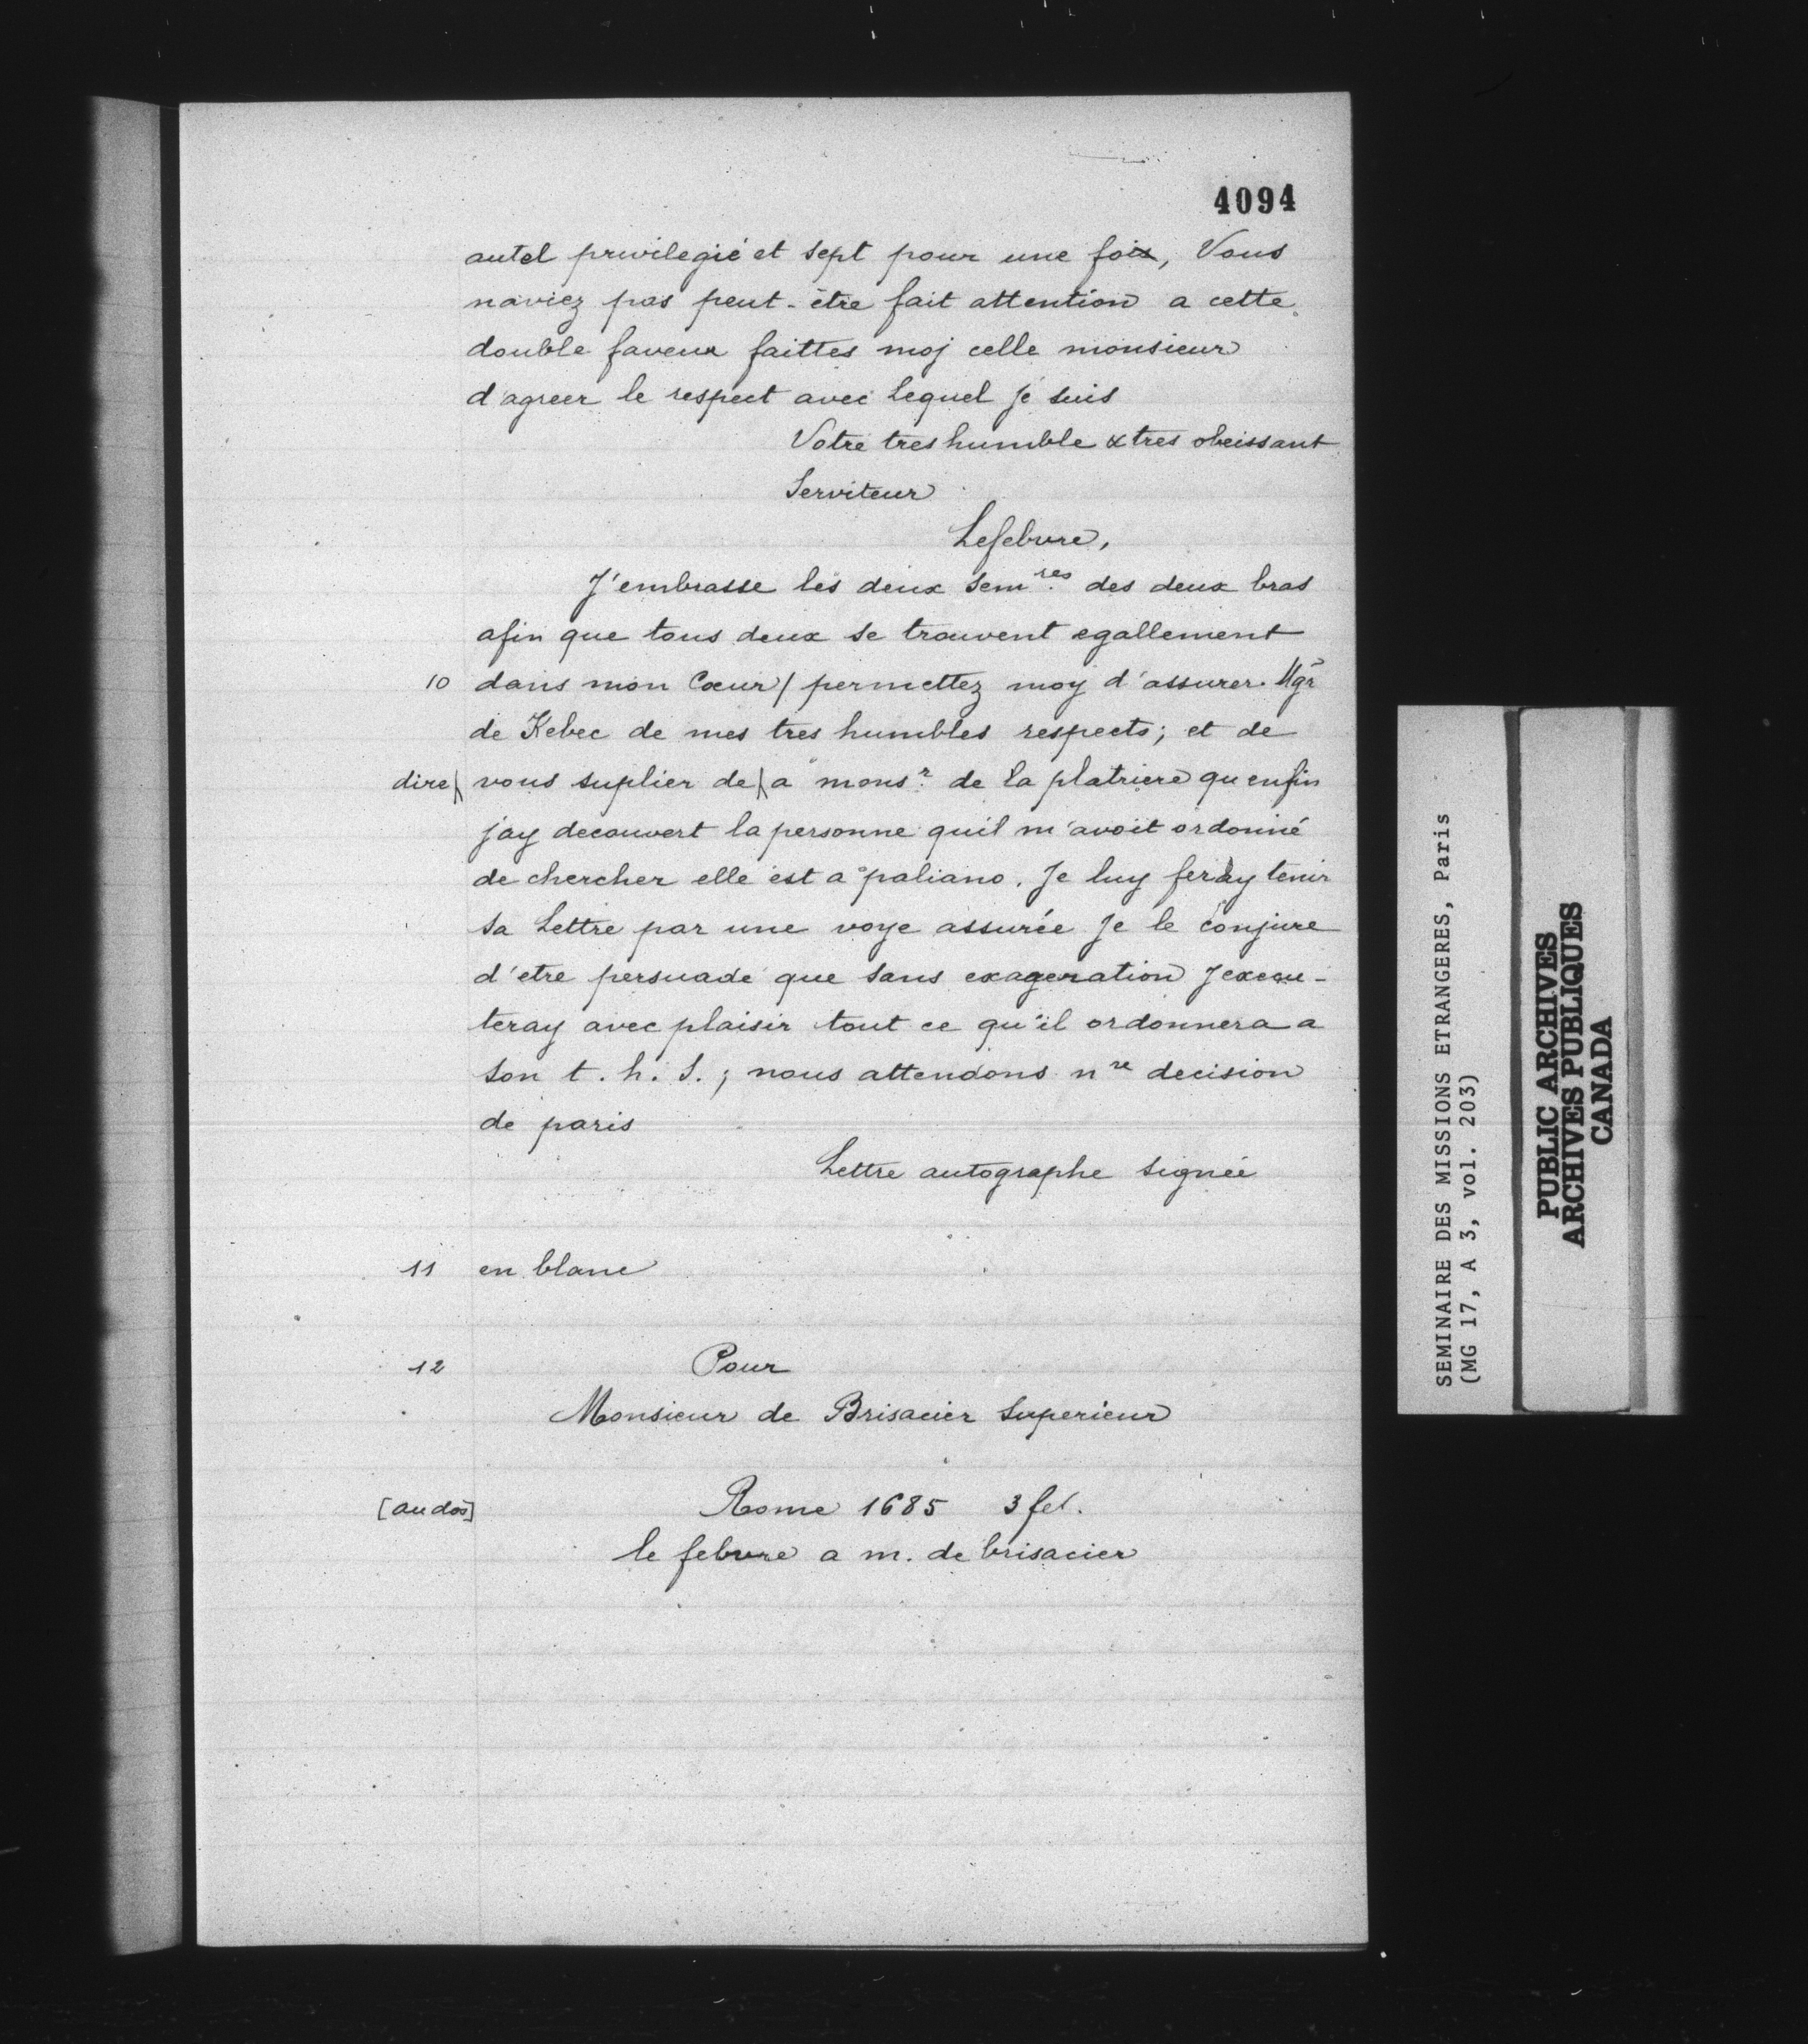 4094
autel privilegié et sept pour une foix, Vous
naviez pas peut-être fait attention a cette
double faveur faittes moj celle monsieur
d'agreer le respect avec Lequel je suis
Votre tres humble & tres obeissant
Serviteur
Lefebvre,
J'embrasse les deux Sem.res des deux bras
afin que tous deux se trouvent egallement
10 dans mon Cœur/ permettez moy d'assurer Mgr
de Kebec de mes tres humbles respects; et de
dire\ vous suplier de \ a monsr. de la platriere qu enfin
jay decouvert la personne quil m'avoit ordonné
de chercher elle est a paliano. Je luy feray tenir
sa Lettre par une voye assurée je le conjure
d'etre persuadé que sans exageration Jexecu-
teray avec plaisir tout ce qu'il ordonnera a
son t. h. S.; nous attendons nre decision
de paris
Lettre autographe signée
11 en blanc
12 Pour
Monsieur de Brisacier Superieur
[au dos] Rome 1685 3 feb.
le febvre a m. de brisacier
SEMINAIRE DES MISSIONS ETRANGERES, Paris
(MG 17, A 3, vol. 203)
PUBLIC ARCHIVES
ARCHIVES PUBLIQUES
CANADA